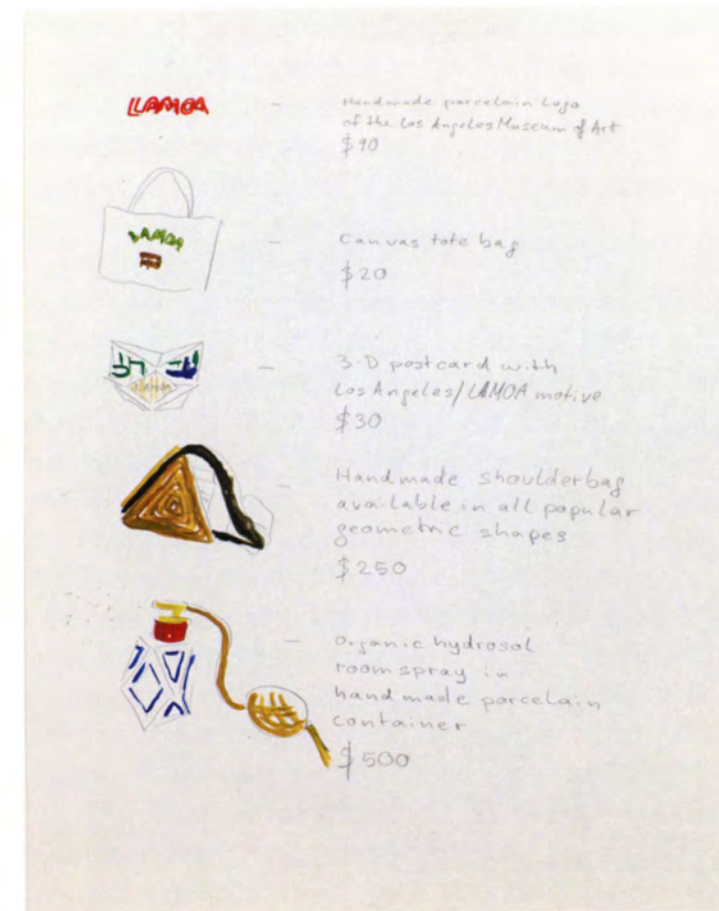 LAMOA
Handmade porcelain Logo
of the Los Angeles Museum of Art
$90
LAMOA
Canvas tote bag
$20
3-D postcard with
Los Angeles/LAMOA motive
$30
Handmade shoulderbag
available in all popular
geometric shapes
$250
Organic hydrosol
roomspray in
handmade porcelain
container
$500